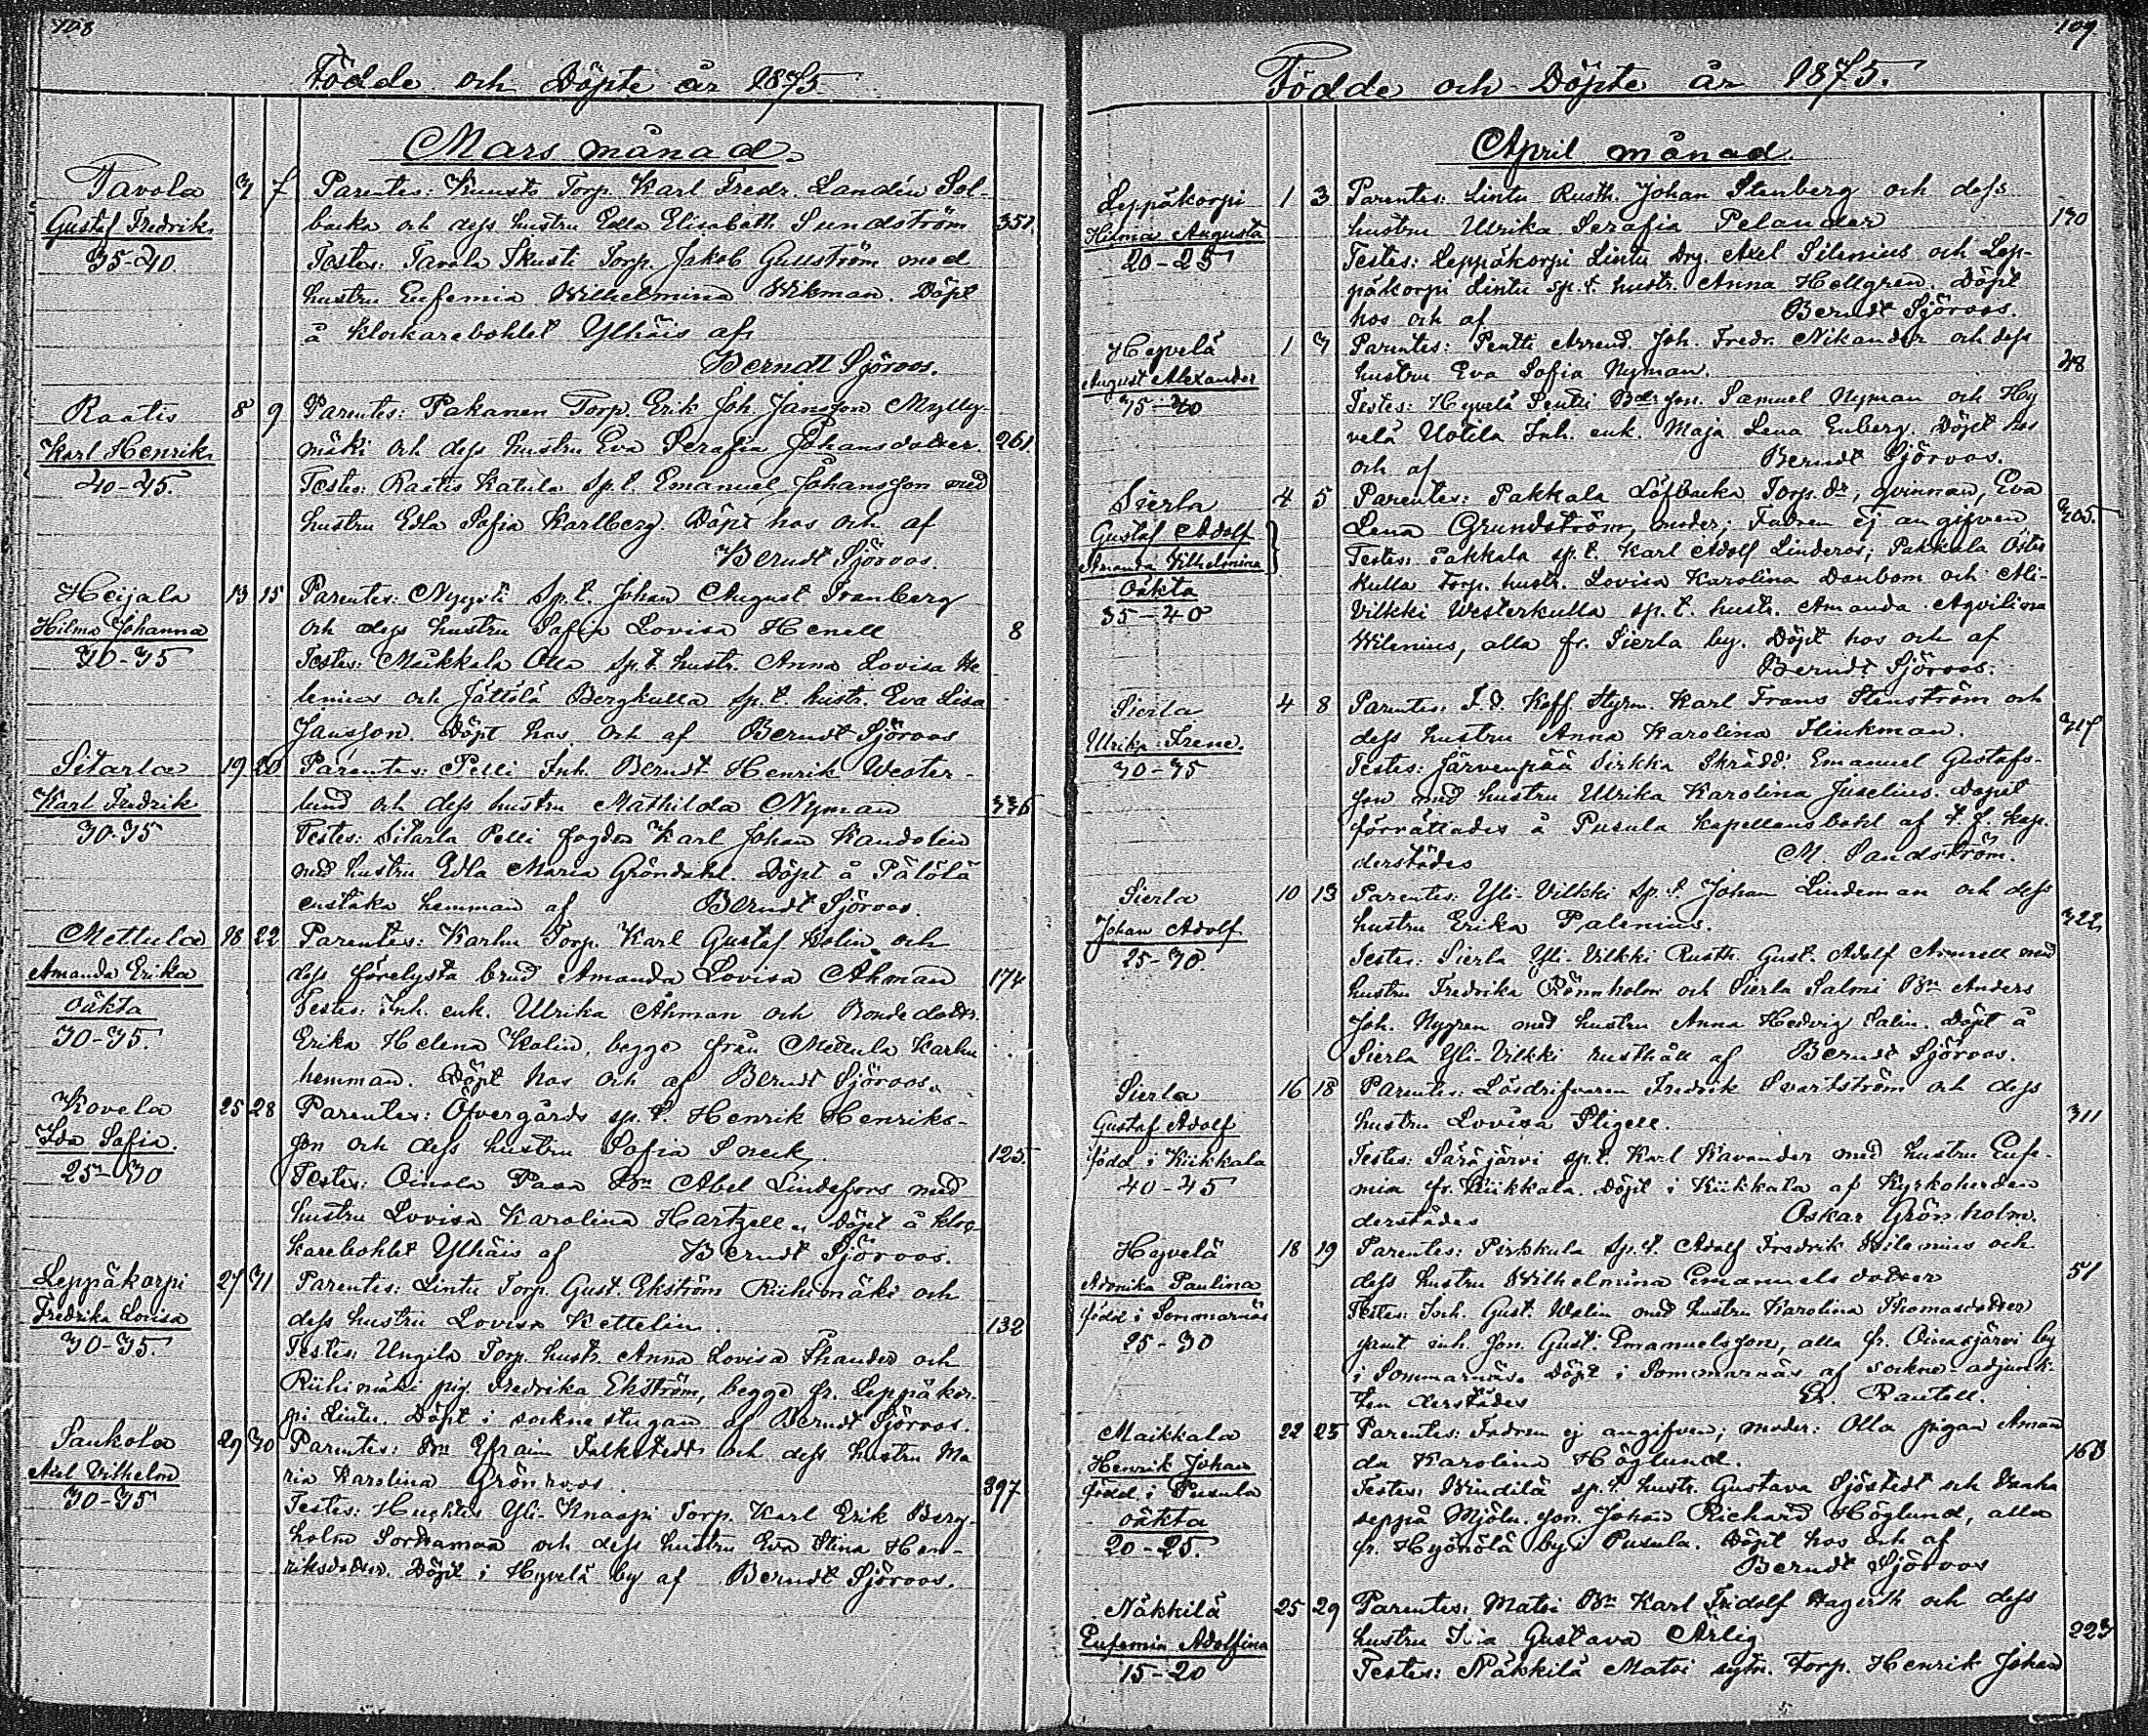 108
Födde och Döpte år 1875
Mars månad.
Tavola 3 7 Parentes: Kuusto Torp. Karl Fredr. Landén Sol-
Gustaf Fredrik backa och dess hustru Edla Elisabeth Sundström 351.
35-40. Testes: Tavola Skusti Torp. Jakob Gullström med
hustru Eufemia Wilhelmina Wikman. Döpt
å klockarebohlet Ylhäis af
Berndt Sjöroos.
Raatis 8 9 Parentes: Pakanen Torp. Erik Joh. Jansson Mylly-
Karl Henrik mäki och dess hustru Eva Serafia Johansdotter. 261.
40-45. Testes: Raatis Katula sp.t. Emanuel Johansson med
hustru Edla Sofia Karlberg. Döpt hos och af
Berndt Sjöroos.
Heijala 13 15 Parentes: Nyysti Sp.t. Johan August Tranberg
Hilma Johanna och dess hustru Sofia Lovisa Henell 8
30-35 Testes: Maikkala Olla sp.t. hustr. Anna Lovisa He
lenius och Jättölä Bergkulla sp.t. hustr. Eva Lisa
Jansson. Döpt hos och af Berndt Sjöroos
Sitarla 19 20 Parentes: Pelli Inh. Berndt Henrik Wester-
Karl Fredrik lund och dess hustru Mathilda Nyman 336
30-35 Testes: Sitarla Pelli fogden Karl Johan Kandolin
med hustru Edla Maria Gröndahl. Döpt å Pälölä
enstaka hemman af Berndt Sjöroos.
Mettula 18 22 Parentes: Karhu Torp. Karl Gustaf Kolin och
Amanda Erika dess förelysta brud Amanda Lovisa Åhman 174
oäkta Testes: Inh. enk. Ulrika Åhman och Bonde dottr.
30-35. Erika Helena Kolin, begge från Mettula Karhu
hemman. Döpt hos och af Berndt Sjöroos.
Kovela 25 28 Parentes: Öfvergårds sp.t. Henrik Henriks-
Ida Sofia. son och dess hustru Sofia Sneck. 125.
25-30 Testes: Oinola Pava Bn Abel Lindefors med
hustru Lovisa Karolina Hartzell. Döpt å kloc-
karebohlet Ylhäis af Berndt Sjöroos.
Leppäkorpi 27 31 Parentes: Lintu Torp. Gust. Ekström Riihimäki och
Fredrika Lovisa dess hustru Lovisa Kettelin. 132
30-35. Testes: Ungila Torp. hustr. Anna Lovisa Thander och
Riihimäki pig. Fredrika Ekström, begge fr. Leppäkor-
pi Lintu. Döpt i sockne stugan af Berndt Sjöroos.
Saukola 29 30 Parentes: Bn Efraim Falkstedt och dess hustru Ma
Axel Vilhelm ria Karolina Grönroos. 397
30-35 Testes: Huhtis Yli-Knaapi Torp. Karl Erik Berg-
holm Sordamaa och dess hustru Eva Stina Hen-
riksdotter. Döpt i Hyvelä by af Berndt Sjöroos.
109
Födde och Döpte år 1875.
April månad.
Leppäkorpi 1 3 Parentes: Lintu Rusth. Johan Stenberg och dess
Hilma Augusta hustru Ulrika Serafia Pelander 130
20-25 Testes: Leppäkorpi Lintu Drg. Axel Silenius och Lep-
päkorpi Lintu sp.t. hustr. Anna Hellgren. Döpt
hos och af Berndt Sjöroos.
Hyvelä 1 3 Parentes: Pentti Arrend. Joh. Fredr. Nikander och dess
August Alexander hustru Eva Sofia Nyman. 48
35-40 Testes: Hyvelä Pentti Bdeson. Samuel Nyman och Hy
velä Uotila Inh. enk. Maja Lena Enberg. Döpt hos
och af Berndt Sjöroos.
Sierla 4 5 Parentes: Pakkala Löfbacka Torp. dr, qvinnan, Eva
Gustaf Adolf Lena Grundström, moder; Fadren ej angifven 305.
Amanda Vilhelmina Testes: Pakkala sp.t. Karl Adolf Linderos; Pakkala Öster
Oäkta kulla Torp. hustr. Lovisa Karolina Danbom och Ali-
35-40 Vilkki Westerkulla sp.t. hustr. Amanda Aqvilina
Wilenius, alla fr. Sierla by. Döpt hos och af
Berndt Sjöroos.
Sierla 4 8 Parentes: F.d. Koff. Styrm. Karl Frans Stenström och
Ulrika Irene. dess hustru Anna Karolina Hinkman. 317
30-35 Testes: Järvenpää Sirkka Skrädd. Emanuel Gustafs-
son med hustru Ulrika Karolina Juselius. Dopet
förrättades å Pusula kapellansbohl af t.f. kap.
derstädes M. Sandström.
Sierla 10 13 Parentes: Yli-Vilkki Sp.t. Johan Lindeman och dess
Johan Adolf. hustru Erika Palenius. 322
25-30. Testes: Sierla Yli-Vilkki Rusth. Gust. Adolf Arnell med
hustru Fredrika Rönnholm och Sierla Salmi Bn Anders
Joh. Nygren med hustru Anna Hedvig Salin. Döpt å
Sierla Yli-Vilkki rusthåll af Berndt Sjöroos.
Sierla 16 18 Parentes: Lösdrifvaren Fredrik Svartström och dess
Gustaf Adolf hustru Lovisa Pligell. 311
född i Kiikkala Testes: Säräjärvi sp.t. Karl Kavander med hustru Eufe-
40-45 mia fr. Kiikkala. Döpt i Kiikkala af Kyrkoherden
derstädes Oskar Grönholm.
Hyvelä 18 19 Parentes: Pirkkula Sp.t. Adolf Fredrik Wilenius och
Aronika Paulina dess hustru Wilhelmina Emanuels dotter 51
född i Sommarnäs Testes: Inh. Gust. Walin med hustru Karolina Thomasdotter
25-30 samt inh. son. Gust. Emanuelsson, alla fr. Oinasjärvi by
i Sommarnäs. Döpt i Sommarnäs af sockne-adjunk-
ten derstädes Er. Rautell.
Maikkala 22 25 Parentes: Fadren ej angifven; moder: Olla pigan Aman
Henrik Johan da Karolina Höglund. 163
född i Pusula Testes: Vindilä sp.t. hustr. Gustava Sjöstedt och Vanha
oäkta seppä Mjöln. son. Johan Richard Höglund, alla
20-25. fr. Hyönölä by i Pusula. Döpt hos och af
Berndt Sjöroos
Näkkilä 25 29 Parentes: Matoi Bn Karl Fridolf Hagerth och dess
Eufemia Adolfina hustru Gustava Ärlig 223
15-20 Testes: Näkkilä Matoi sytn. Torp. Henrik Johan